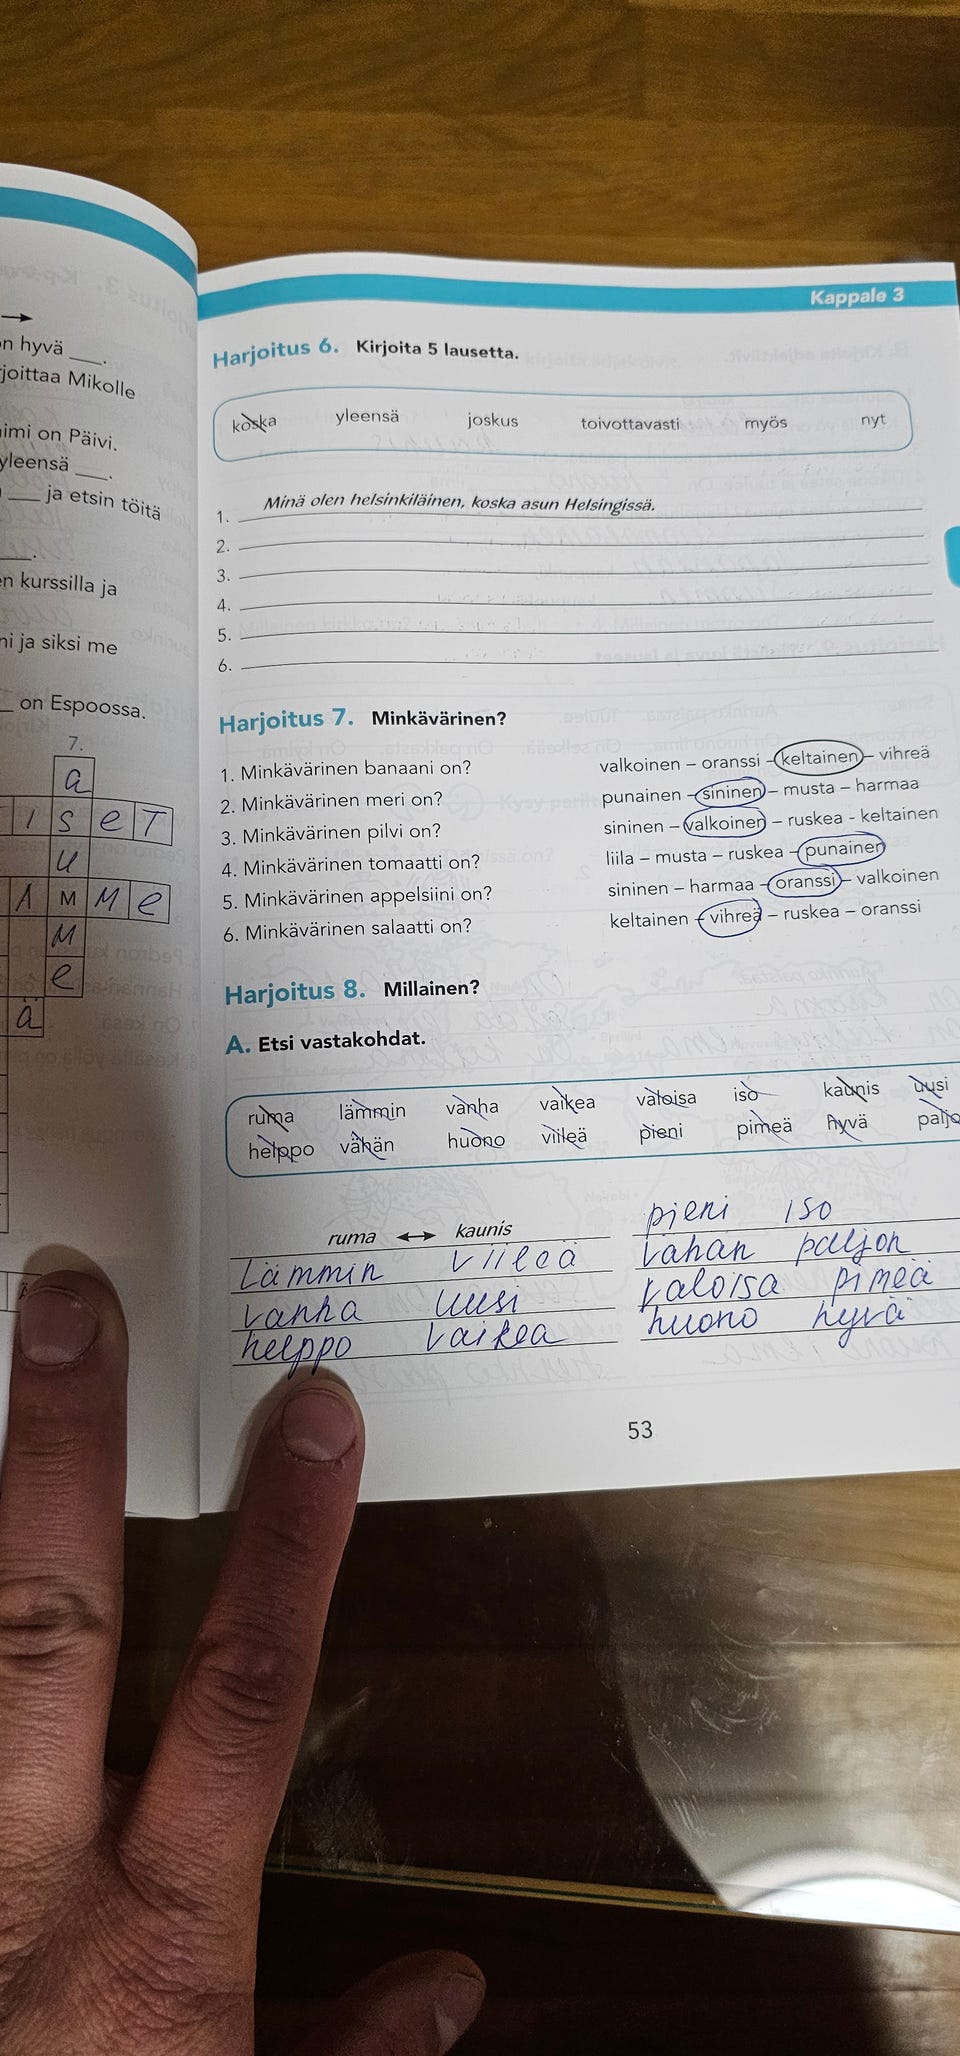 →
n hyvä ___.
joittaa Mikolle
imi on Päivi.
yleensä ___.
___ ja etsin töitä
___.
en kurssilla ja
ni ja siksi me
___ on Espoossa.
7.
a
i s e T
u
л м м e
м
e
ä
Kappale 3
Harjoitus 6. Kirjoita 5 lausetta.
koska yleensä joskus toivottavasti myös nyt
1. Minä olen helsinkiläinen, koska asun Helsingissä.
2.
3.
4.
5.
6.
Harjoitus 7. Minkävärinen?
1. Minkävärinen banaani on? valkoinen – oranssi – keltainen – vihreä
2. Minkävärinen meri on? punainen – sininen – musta – harmaa
3. Minkävärinen pilvi on? sininen – valkoinen – ruskea - keltainen
4. Minkävärinen tomaatti on? liila – musta – ruskea – punainen
5. Minkävärinen appelsiini on? sininen – harmaa – oranssi – valkoinen
6. Minkävärinen salaatti on? keltainen – vihreä – ruskea – oranssi
Harjoitus 8. Millainen?
A. Etsi vastakohdat.
ruma lämmin vanha vaikea valoisa iso kaunis uusi
helppo vähän huono viileä pieni pimeä hyvä paljo
ruma ↔ kaunis
lämmin viileä
vanha uusi
helppo vaikea
pieni iso
vähän paljon
valoisa pimeä
huono hyvä
53